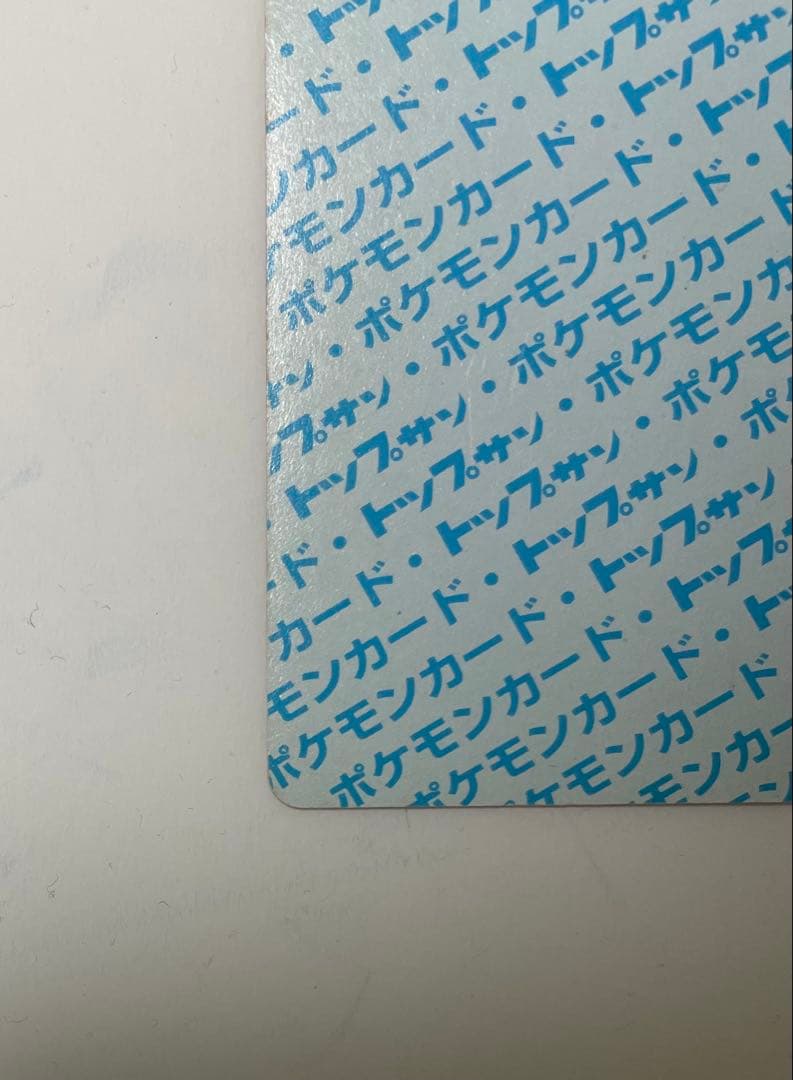 ・トッ
ード・トッ
ンカード・トップ
ケモンカード・トップサ
ポケモンカード・トップサン
サン・ポケモンカード・トップ
プサン・ポケモンカード・
・トップサン・ポケモンカード
ード・トップサン・ポケモンカー
カード・トップサン・ポケモンカ
モンカード・トップサン・ポケモ
ポケモンカード・トップサン・ポ
ポケモンカード・トップサン
ポケモンカード・トップ
ケモンカード・ト
モンカード